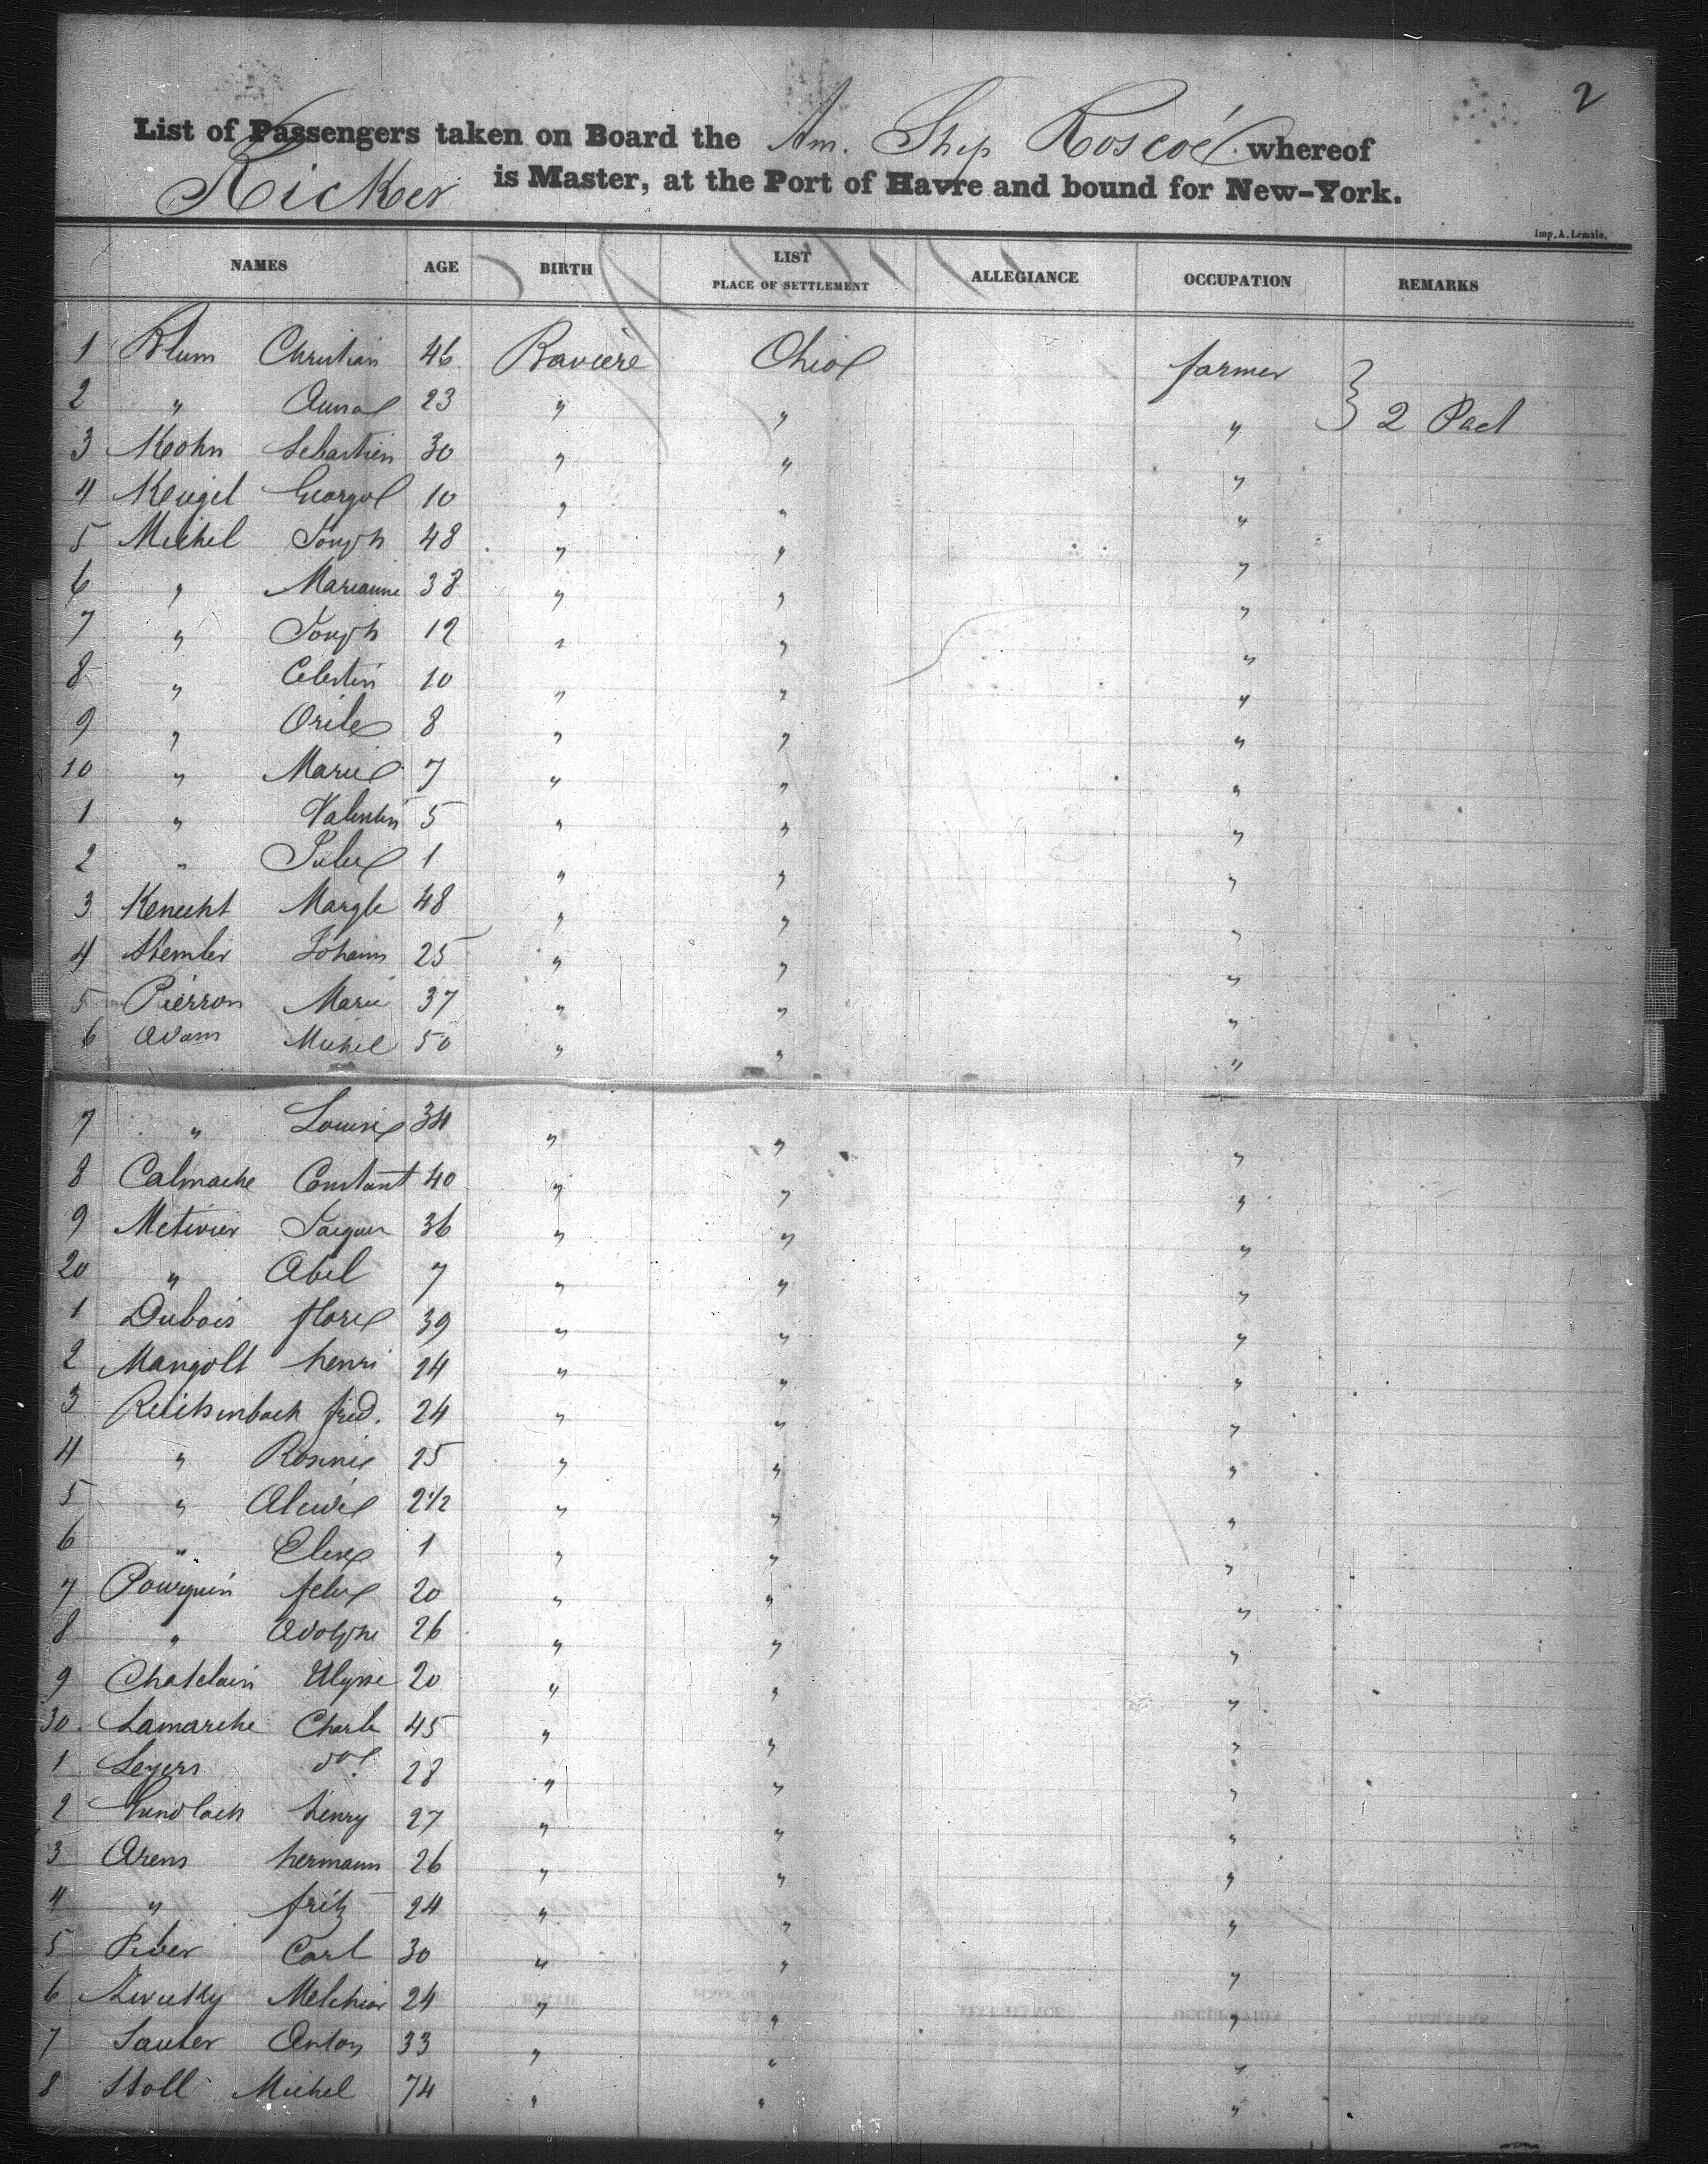 2
List of Passengers taken on Board the Am. Ship Roscoe whereof
Ricker is Master, at the Port of Havre and bound for New-York.
Imp. A. Lemale.
NAMES AGE BIRTH LIST PLACE OF SETTLEMENT ALLEGIANCE OCCUPATION REMARKS
1 Blum Christian 46 Bavière Ohio farmer
2 " Anna 23 " " " } 2 Pact
3 Kohn Sebastien 30 " " "
4 Kugel George 10 " " "
5 Michel Joseph 48 " " "
6 " Marianne 38 " " "
7 " Joseph 12 " " "
8 " Celestin 10 " " "
9 " 8 " " "
10 " Marie 7 " " "
1 " Valentin 5 " " "
2 " Julie 1 " " "
3 Knecht Margte 48 " " "
4 Stemler Johann 25 " " "
5 Pierron Marie 37 " " "
6 Adam Michel 50 " " "
7 " Louise 34 " " "
8 Calmache Constant 40 " " "
9 Metivier Jacques 36 " " "
20 " Abel 7 " " "
1 Dubois flore 39 " " "
2 Mangolt henri 24 " " "
3 Reichenbach fred. 24 " " "
4 " Rosine 25 " " "
5 " 2 1/2 " " "
6 " Elise 1 " " "
7 Pourquin felix 20 " " "
8 " Adolphe 26 " " "
9 Chatelain Ulysse 20 " " "
30 Lamarche Charle 45 " " "
1 Leyers do 28 " " "
2 Gundlach henry 27 " " "
3 Arens hermann 26 " " "
4 " fritz 24 " " "
5 Carl 30 " " "
6 Melchior 24 " " "
7 Sauter Anton 33 " " "
8 Stoll Michel 74 " " "